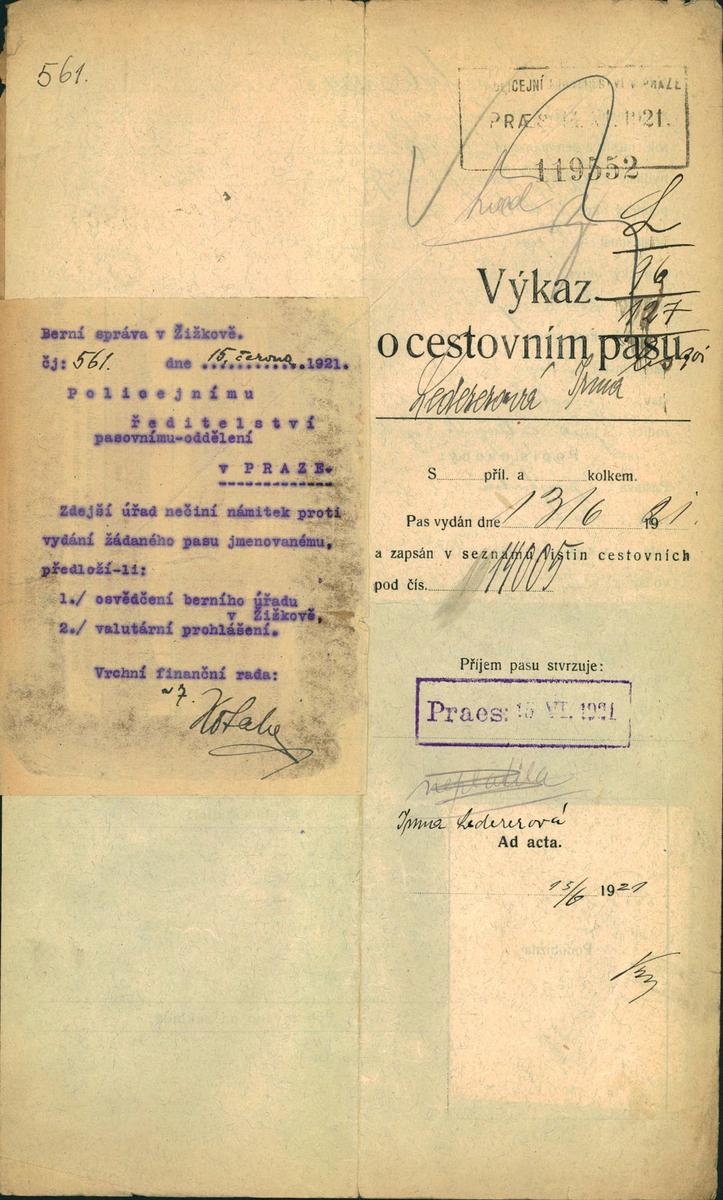 561.
Berní správa v Žižkově.
čj: 561. dne 15. června 1921.
Policejnímu
ředitelství
pasovnímu-oddělení
v PRAZE.
Zdejší úřad nečiní námitek proti
vydání žádaného pasu jmenovanému,
předloží-li:
1./ osvědčení berního úřadu
v Žižkově,
2./ valutární prohlášení.
Vrchní finanční rada:
V PRAZE
PRÆS 1921.
119552
L
96
127
Výkaz
o cestovním pasu
Ledererová Irma
S příl. a kolkem.
Pas vydán dne 13/6 1921.
a zapsán v seznamu listin cestovních
pod čís. 14005
Příjem pasu stvrzuje:
Praes: 15 VI. 1921
neplatila
Irma Ledererová
Ad acta.
15/6 1921